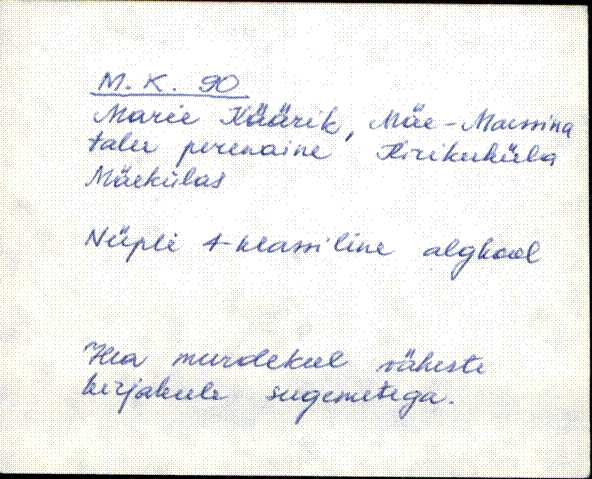 M. K. 90
Marie Käärik, Mäe-Massina
talu perenaine Kirikuküla
Mäekülas
Nüpli 4-klassiline algkool
Hea murdekeel väheste
kirjakeele sugemetega.